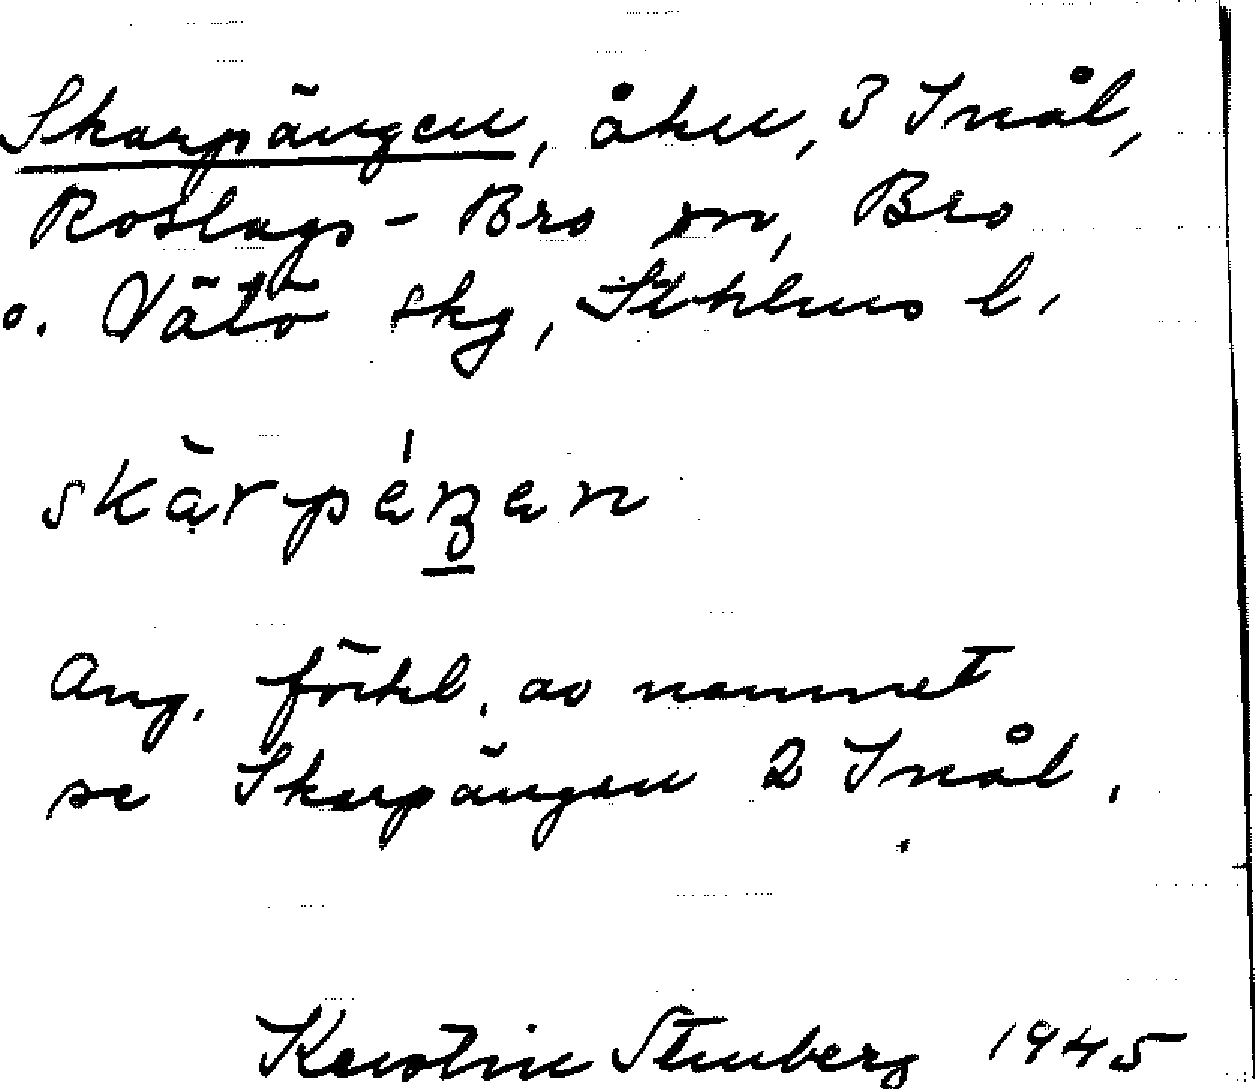 Skarpängen, åker, 3 Snål,
Roslags-Bro sn, Bro
o. Vätö skg, Sthlms l.
skàrpéŋen
Ang. förhl. av namnet
se Skarpängen 2 Snål.
Stenberg 1945